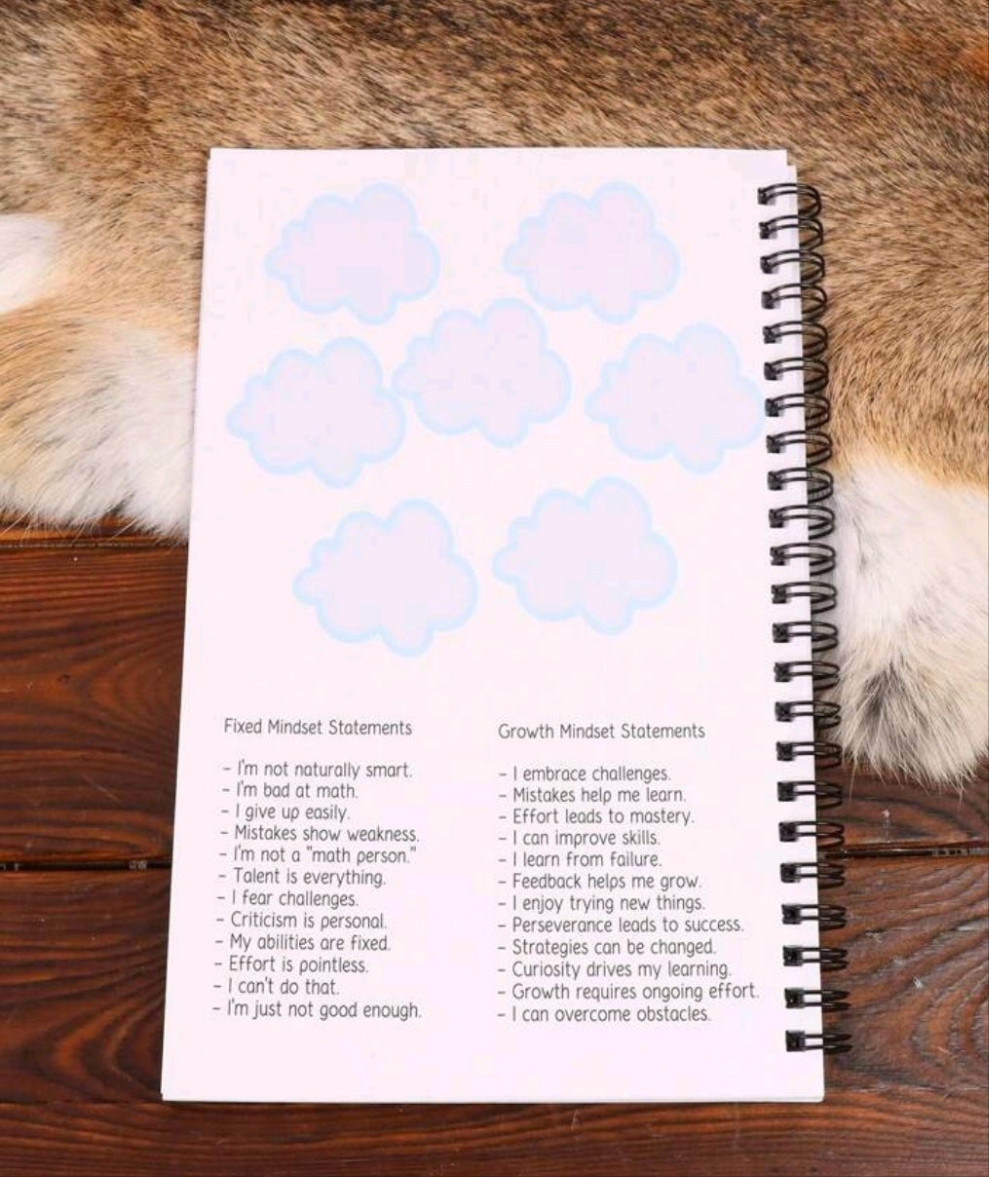 Fixed Mindset Statements
- I'm not naturally smart.
- I'm bad at math.
- I give up easily.
- Mistakes show weakness.
- I'm not a "math person."
- Talent is everything.
- I fear challenges.
- Criticism is personal.
- My abilities are fixed.
- Effort is pointless.
- I can't do that.
- I'm just not good enough.
Growth Mindset Statements
- I embrace challenges.
- Mistakes help me learn.
- Effort leads to mastery.
- I can improve skills.
- I learn from failure.
- Feedback helps me grow.
- I enjoy trying new things.
- Perseverance leads to success.
- Strategies can be changed.
- Curiosity drives my learning.
- Growth requires ongoing effort.
- I can overcome obstacles.